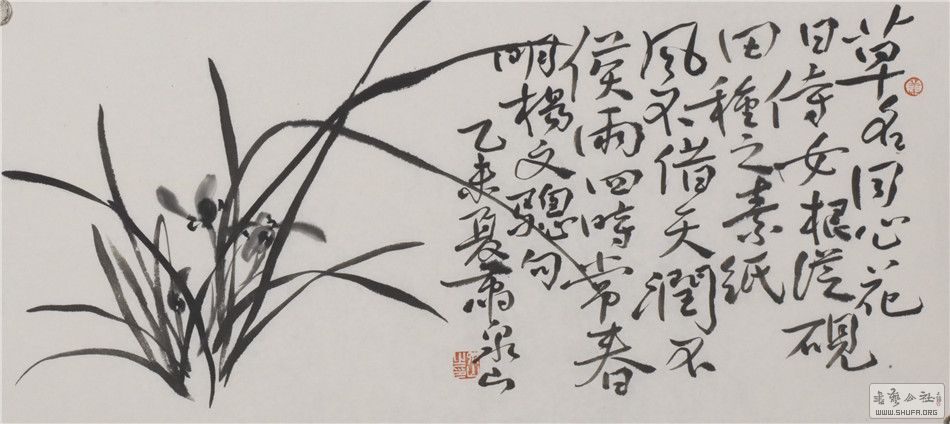 草名同心花
曰侍女根從硯
田種之素紙
風不借天潤不
俟雨四時常春
明楊文驄句
乙未夏蕭泉山
書藝公社
WWW.SHUFA.ORG